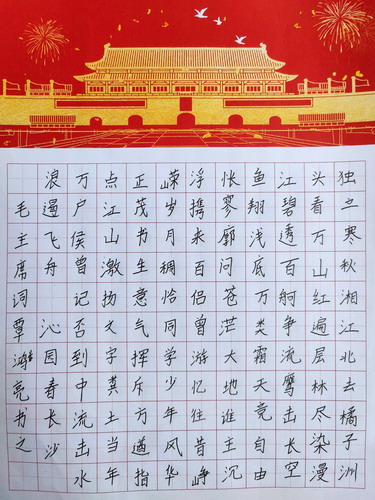 独立寒秋湘江北去橘子洲
头看万山红遍层林尽染漫
江碧透百舸争流鹰击长空
鱼翔浅底万类霜天竞自由
怅寥廓问苍茫大地谁主沉
浮携来百侣曾游忆往昔峥
嵘岁月稠恰同学少年风华
正茂书生意气挥斥方遒指
点江山激扬文字粪土当年
万户侯曾记否到中流击水
浪遏飞舟 沁园春长沙
毛主席词覃鸿亮书之